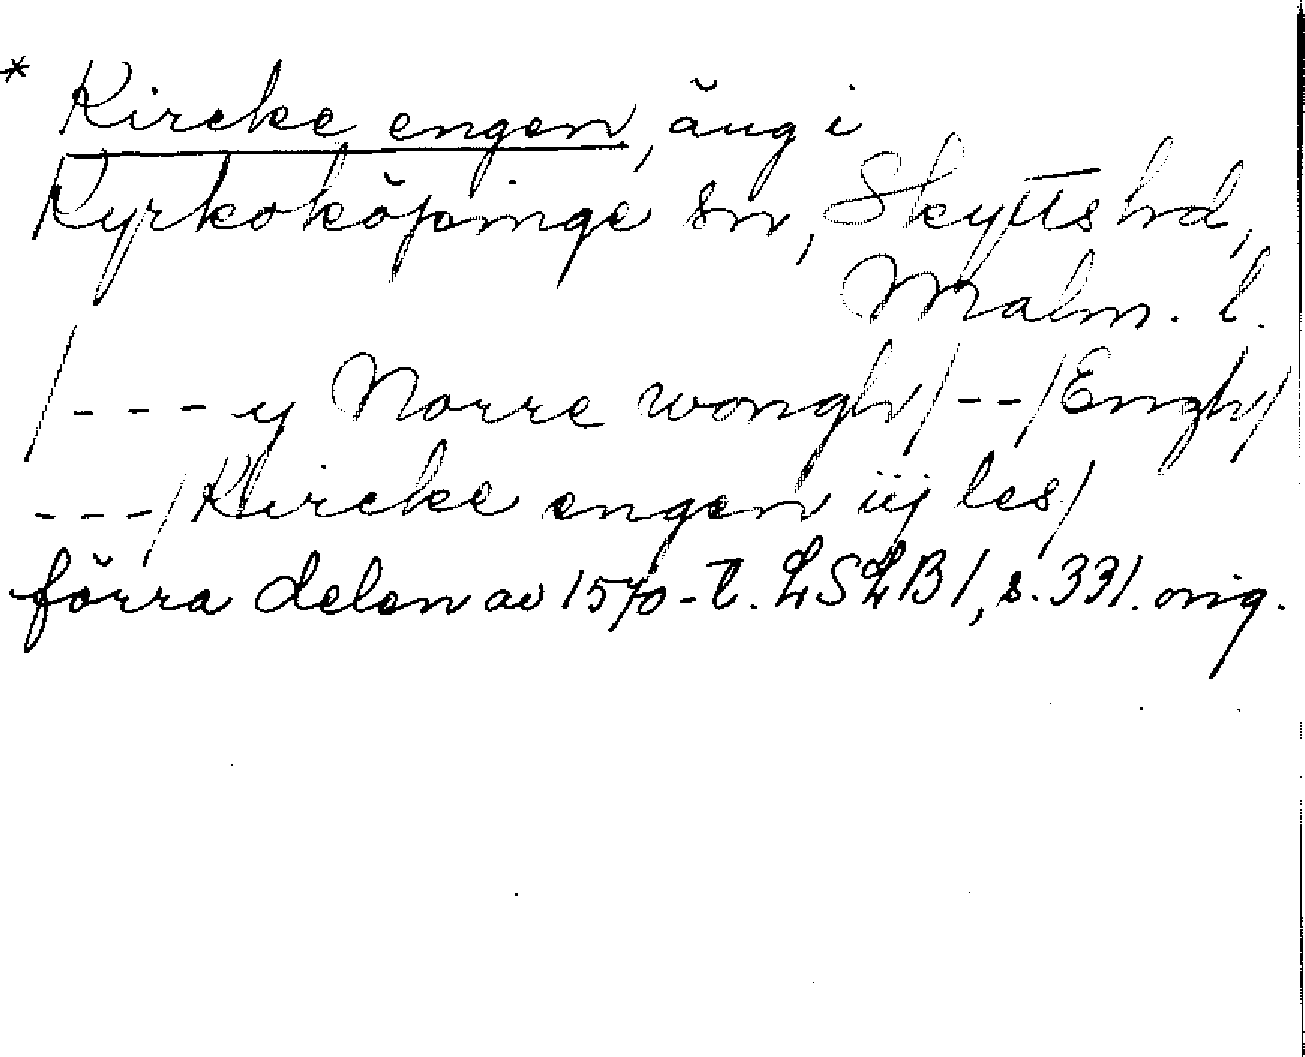 * Kircke engen, äng i
Kyrkoköpinge sn, Skytts hd,
Malm. l.
/---y Norre wongh/--/Engh/
---/Kircke engen iij les/
förra delen av 1570-t. LSLB1, s. 331. orig.